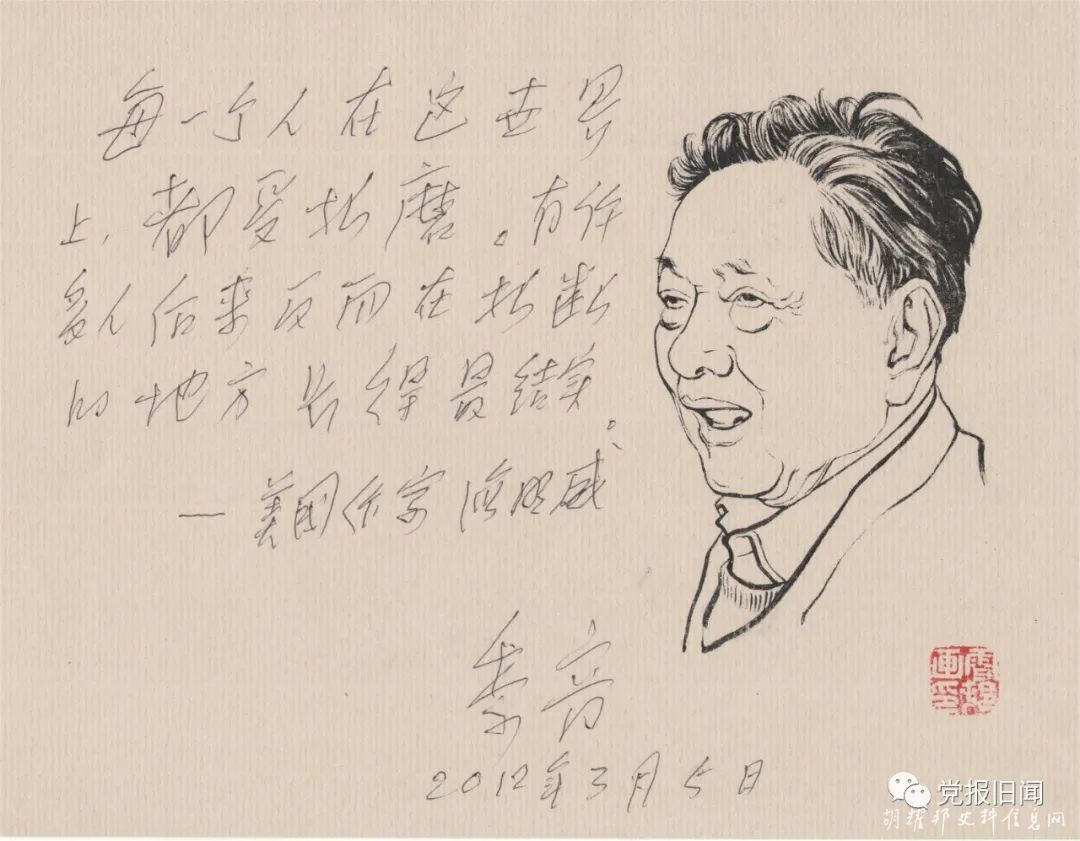 每一个人在这世界
上，都受折磨。有许
多人后来反而在折断
的地方长得最结实。
— 美国作家 海明威
季音
2012年3月5日
党报旧闻
胡耀邦史料信息网